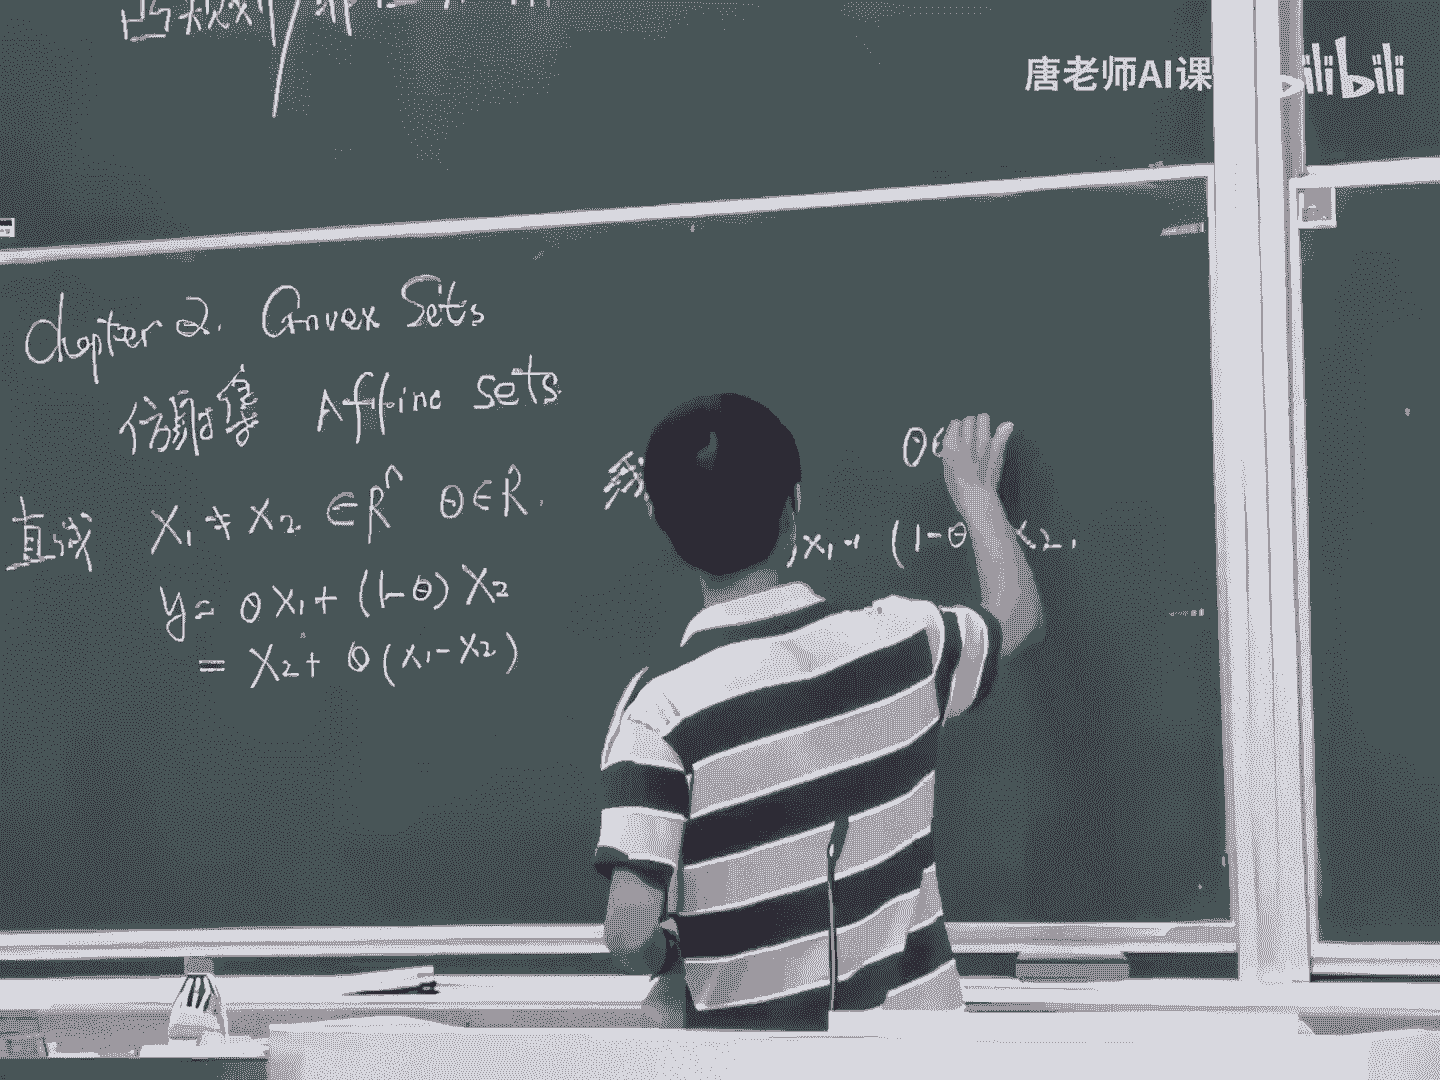 凸规划
唐老师AI课 bilibili
Chapter 2. Convex Sets
仿射集 Affine sets
直线 X₁ ≠ X₂ ∈ Rⁿ θ ∈ R.
y = θX₁ + (1-θ) X₂
= X₂ + θ(X₁-X₂)
线
θ∈
X₁ + (1-θ X₂,